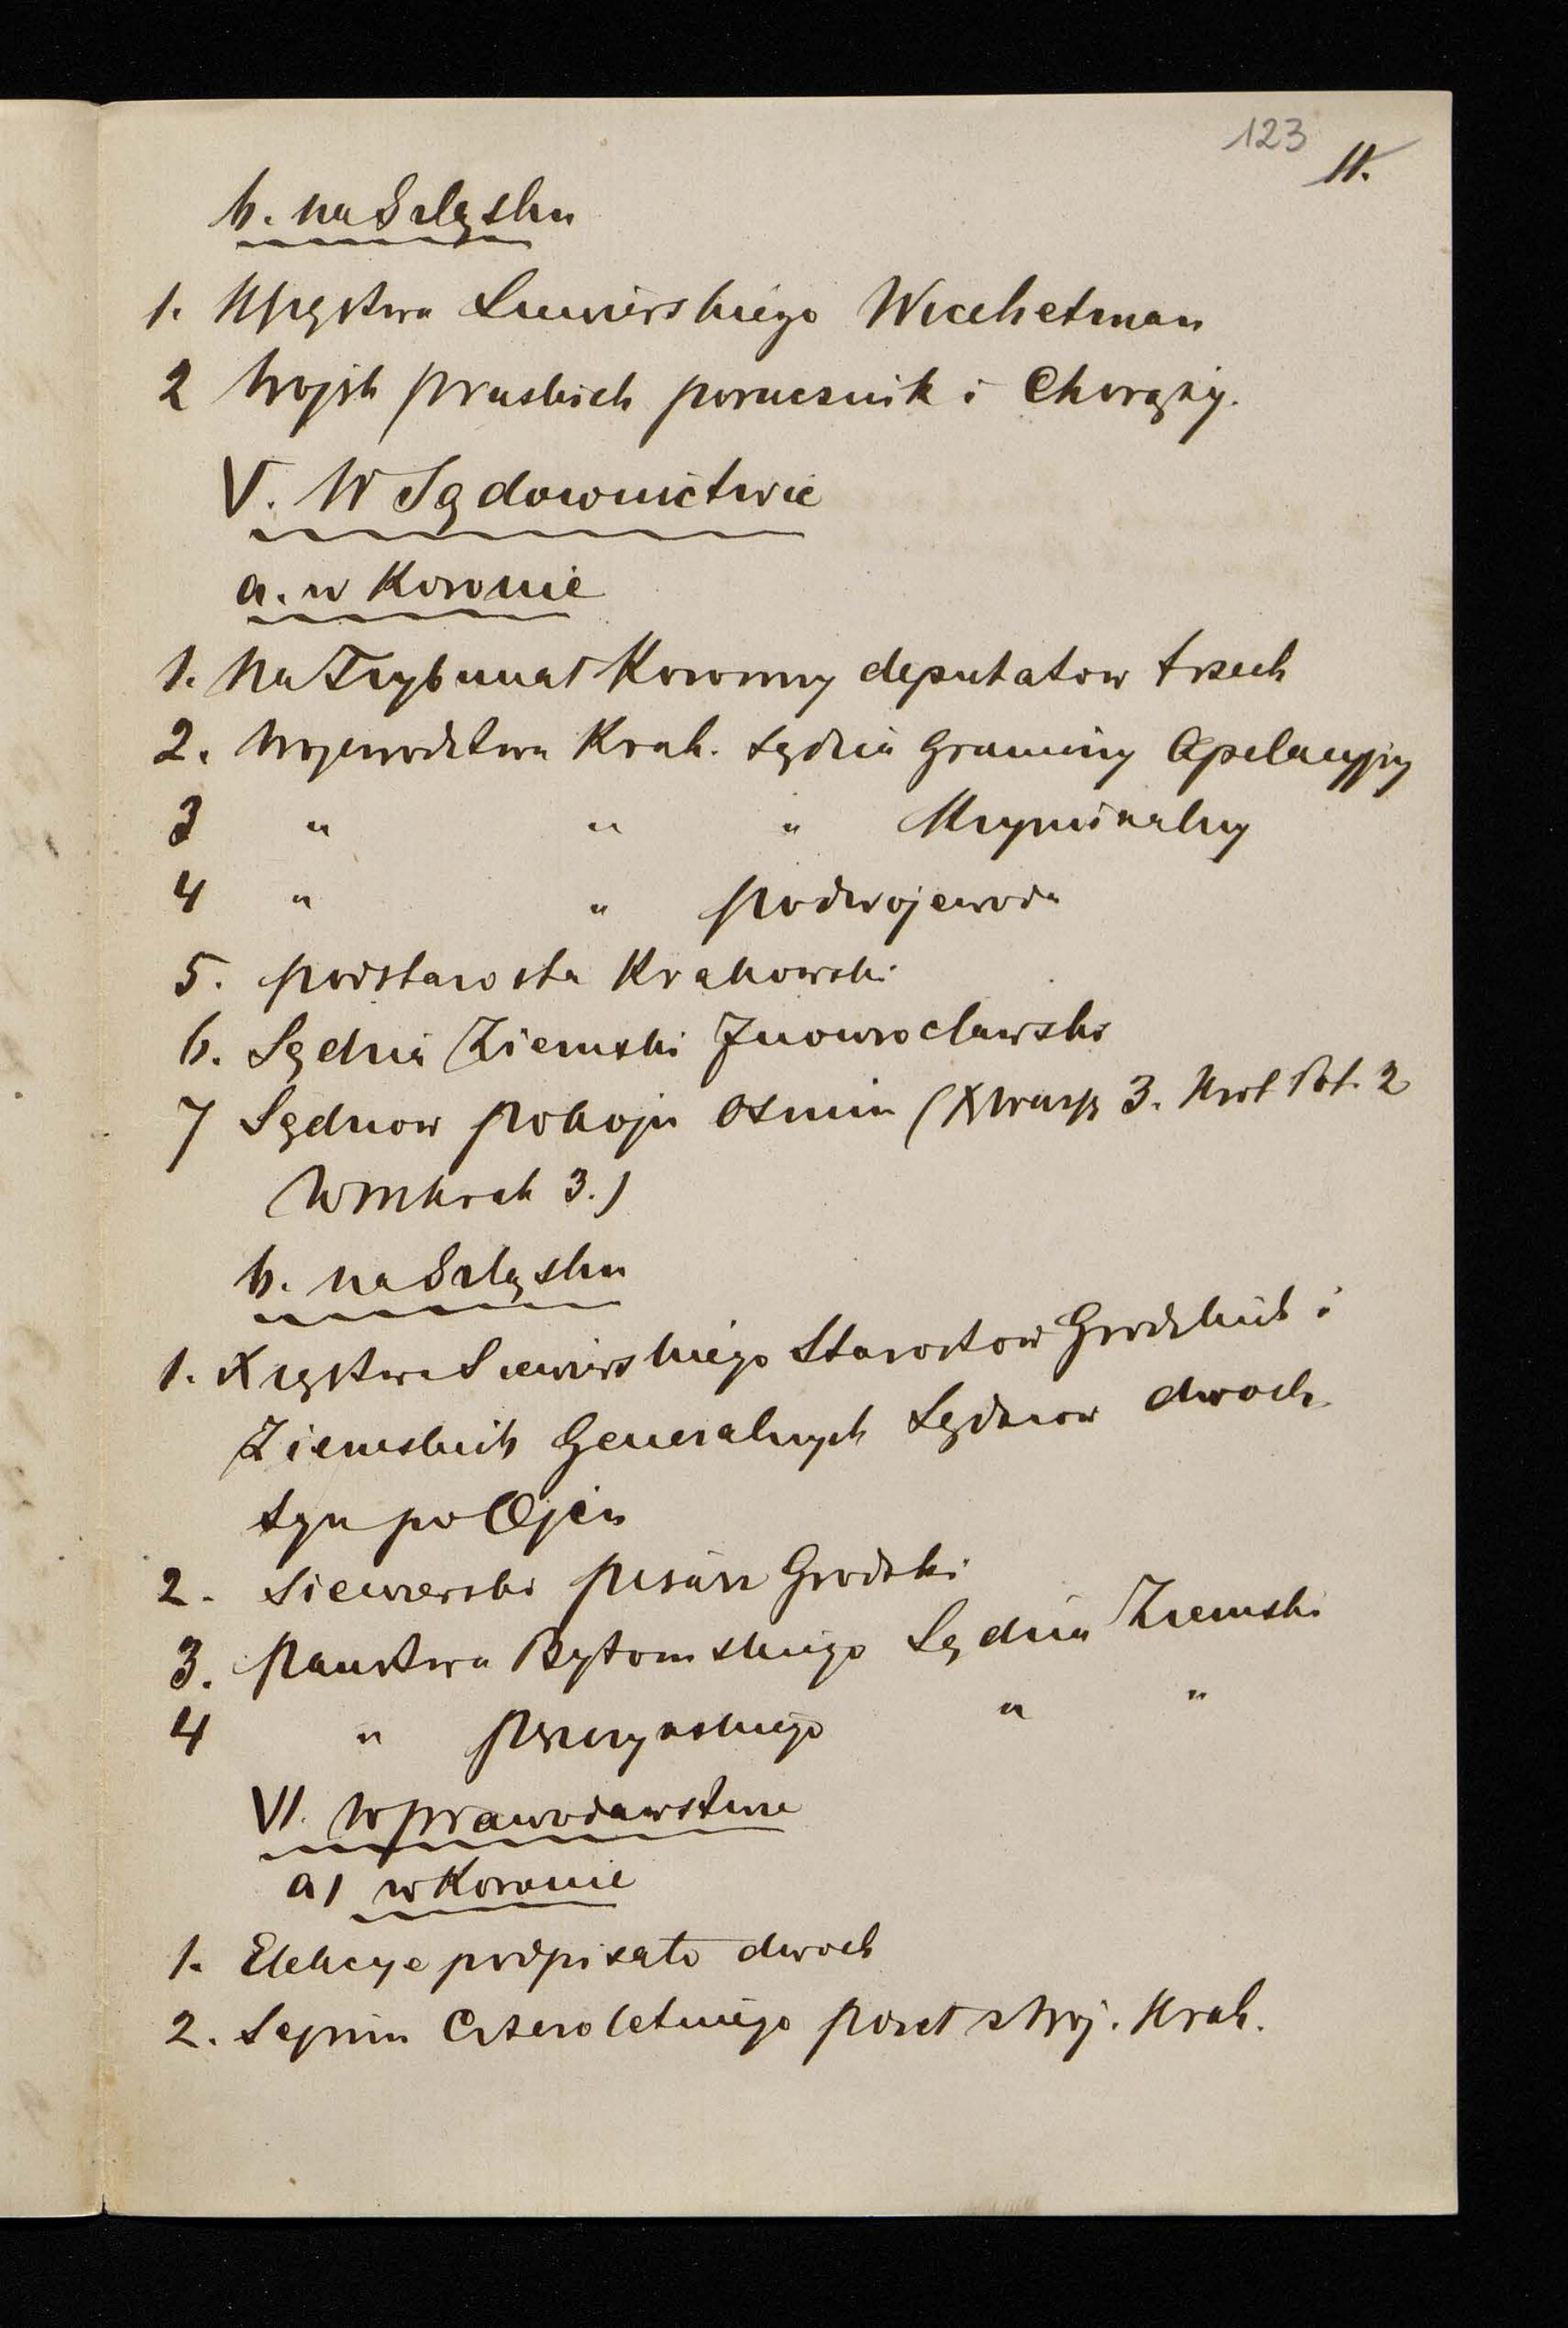 123
11.
b. na Szląsku
1. Xięstwa Siewierskiego Wicehetman
2 Wojsk pruskich porucznik i Chorąży.
V. W Sądownictwie
a. w Koronie
1. Na Trybunał Koronny deputatow trzech
2. Wojewodztwa Krak. sędzia Graniczny Apelacyjny
3 " " " Kryminalny
4 " " podwojewoda
5. podstarosta Krakowski
6. Sędzia Ziemski Inowrocławski
7 Sędziow pokoju ośmiu (X Warsz 3. Krol Pol. 2
WMKrak 3.)
b. na Szląsku
1. Xięstwa Siewierskiego Starostow Grodzkich i
Ziemskich Generalnych Sędziow dwoch
syn po Ojcu
2. Siewierski pisarz Grodzki
3. Państwa Bytomskiego Sędzia Ziemski
4 " pszczynskiego " "
VI. W prawodawstwie
a) w Koronie
1. Elekcye podpisało dwoch
2. Sejmu Czteroletniego poseł z Woj. Krak.